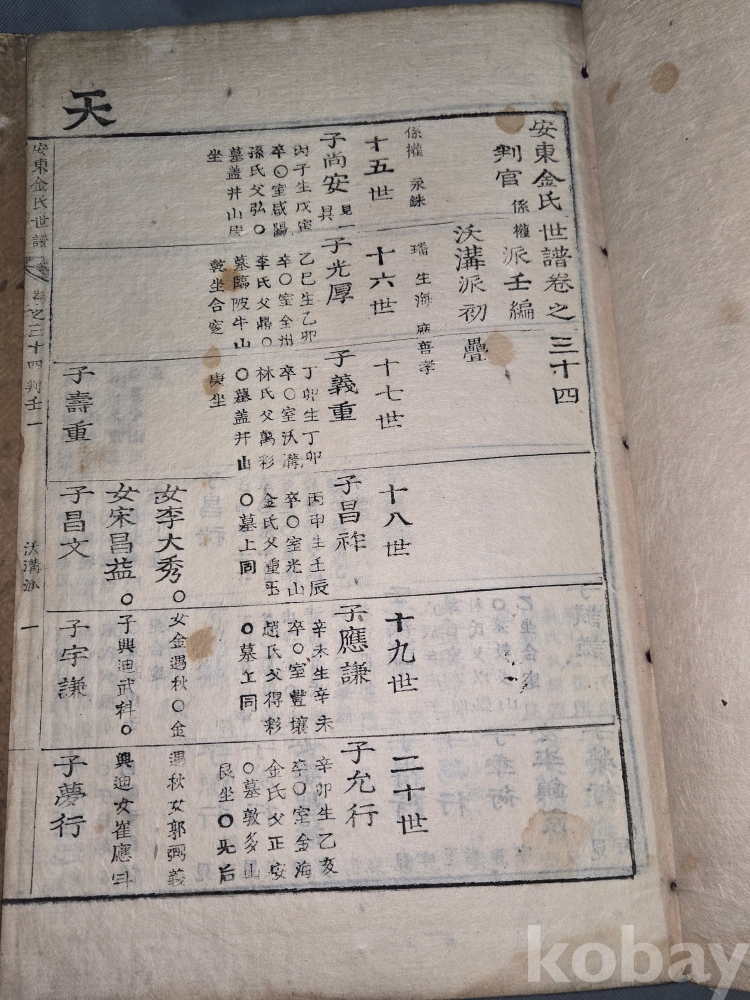 天
安東金氏世譜卷之三十四
判官係權派壬編
沃溝派初疊
係權 永銖
璠 生海 麻 善孝
十五世
子尚安 見一
丙子生戊寅
卒○室咸陽
孫氏父弘○
墓盖井山
坐
十六世
子光厚
乙巳生乙卯
卒○室全州
李氏父鼎○
墓臨陂牛山
乾坐合窆
十七世
子義重
丁卯生丁卯
卒○室沃溝
林氏父萬彩
○墓盖井山
庚坐
子壽重
十八世
子昌祚
丙申生壬辰
卒○室光山
金氏父重玉
○墓上同
女李大秀○女金遇秋○金
遇秋女郭弼義
女宋昌益○子興迪武科○
興迪女崔應
子昌文
十九世
子應謙
辛未生辛未
卒○室豐壤
趙氏父得彩
○墓上同
子宇謙
二十世
子允行
辛卯生乙亥
卒○室金海
金氏父正安
○墓敦多山
艮坐○无后
子夢行
安東金氏世譜 卷之三十四 判壬一
沃溝派 一
kobay